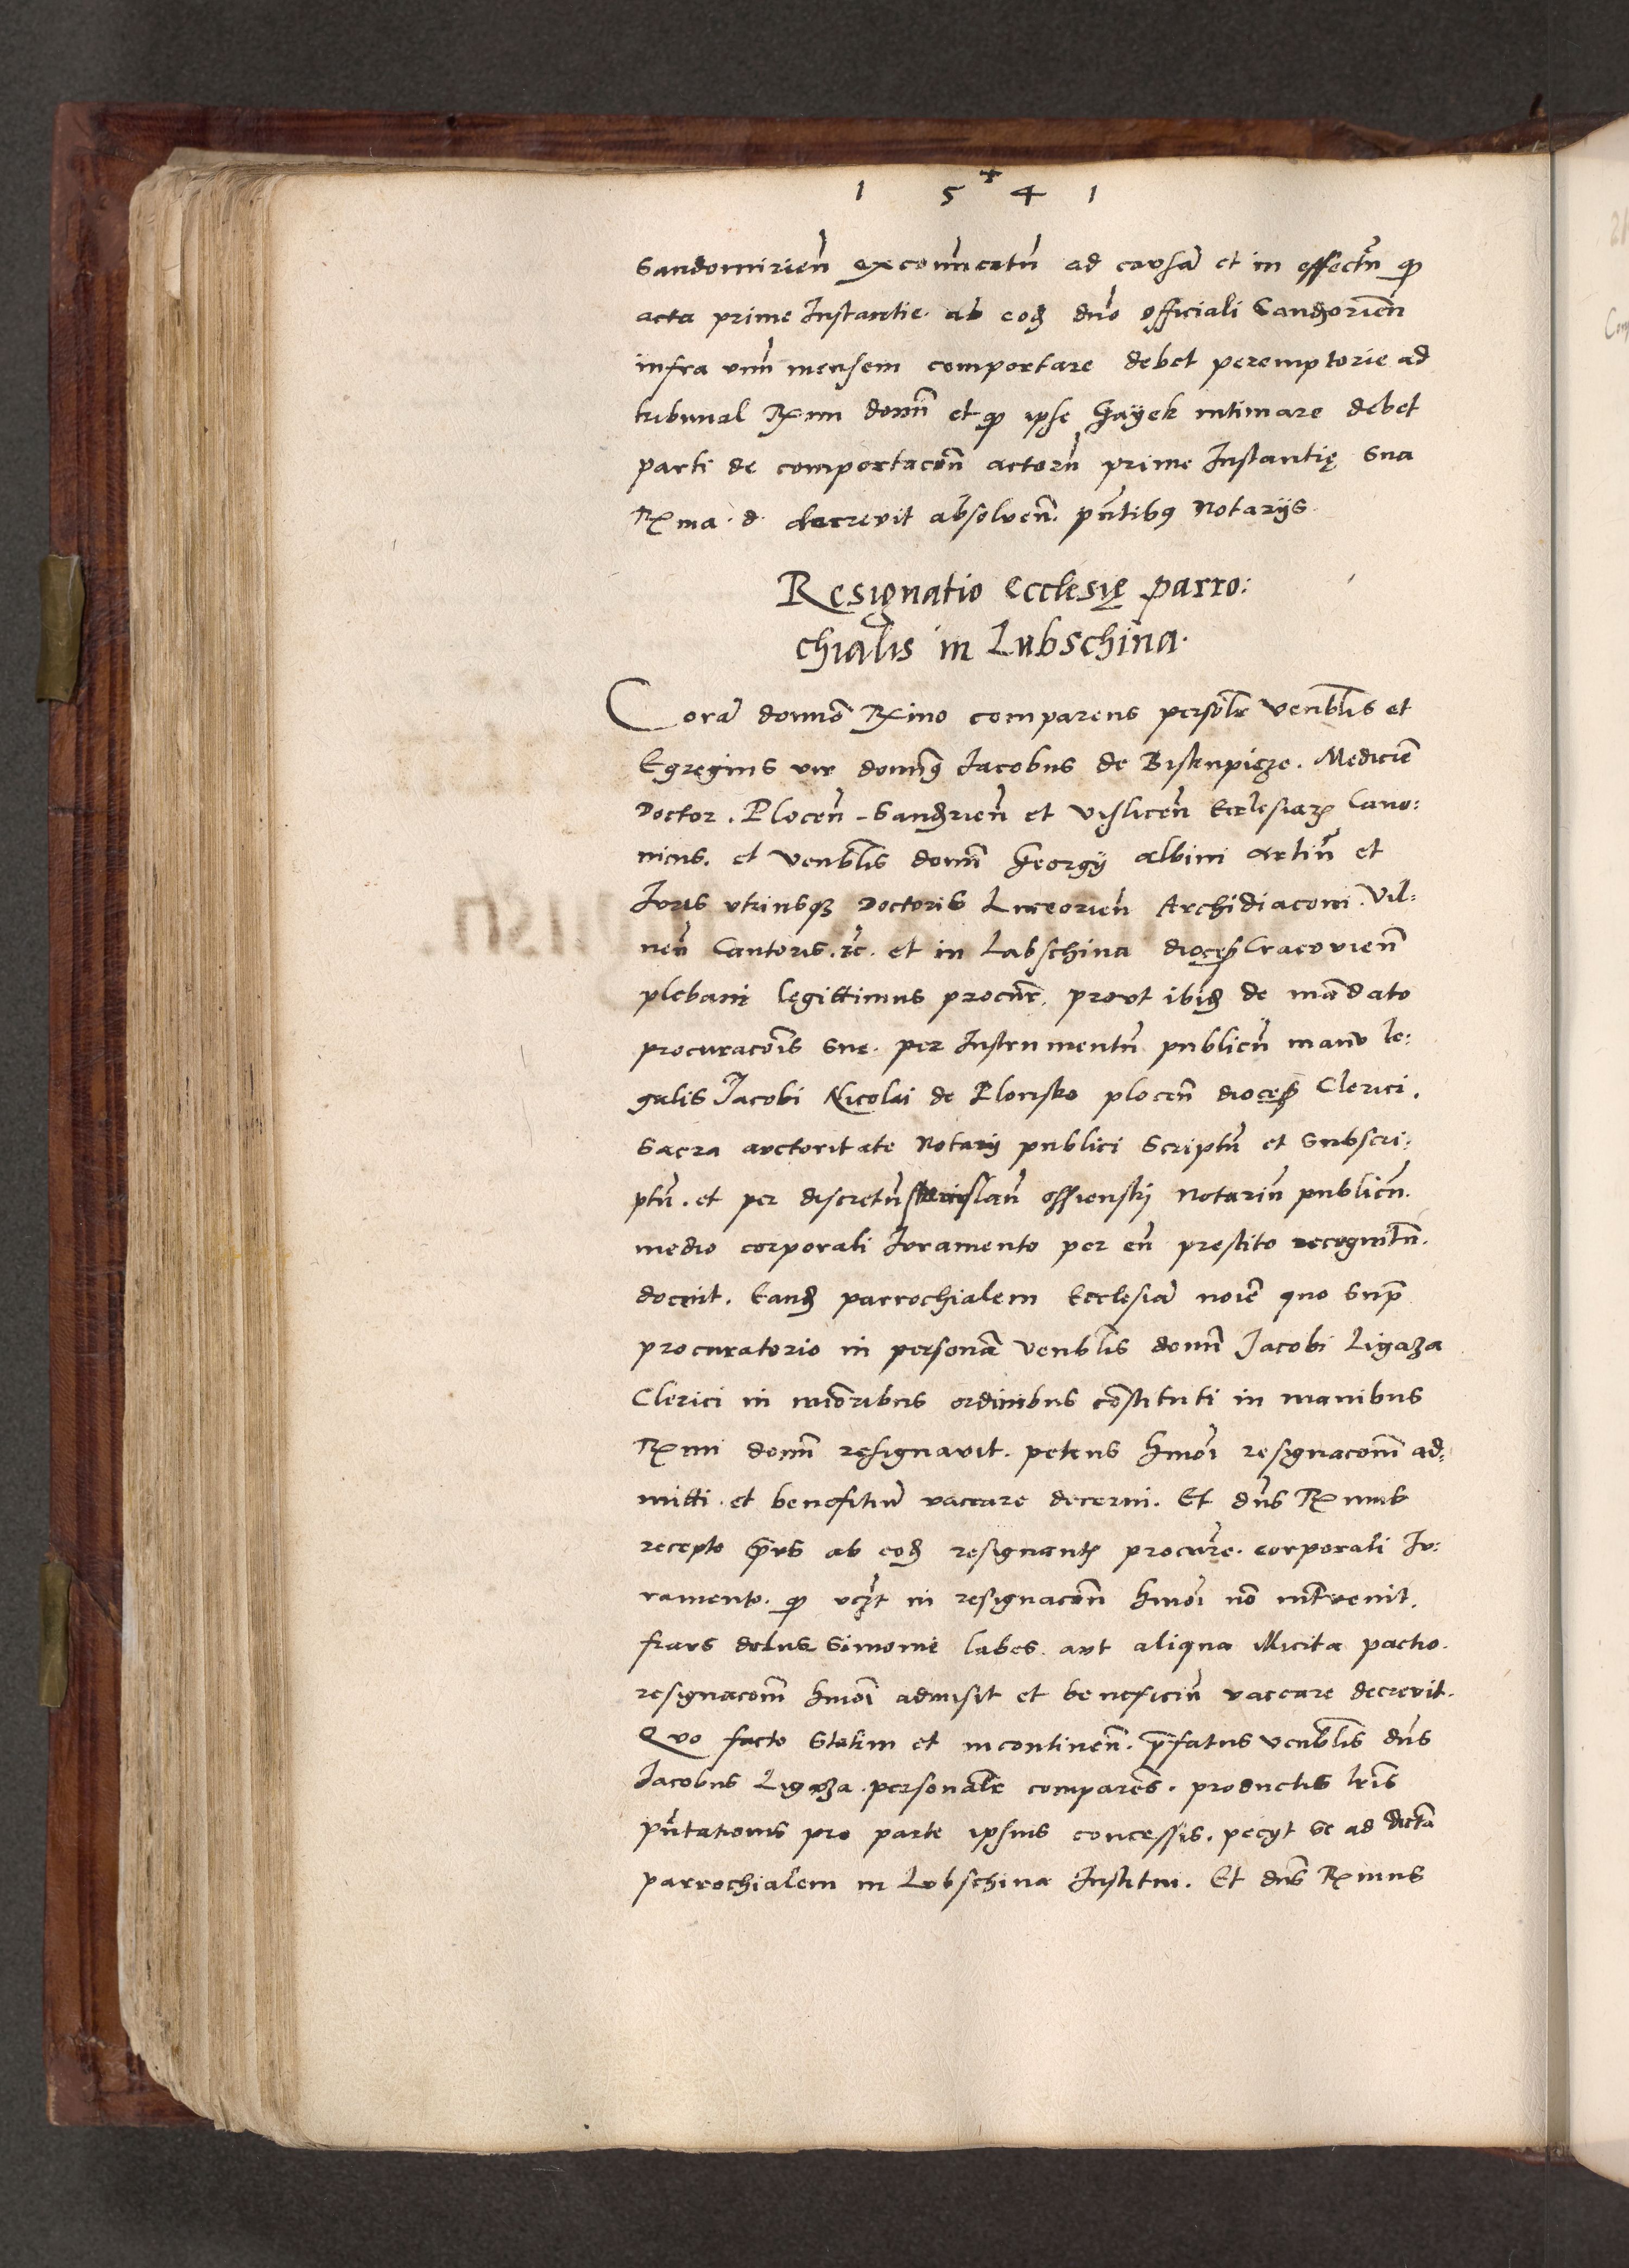 1 5 4 1
Sandomirien̄ excom̄icatū ad causā et in effectū qꝫ
acta prime Instantie ab eodꝫ dn̄o Officiali Sandꝫorien̄
infra vnū mensem comportare debet peremptorie ad
tribunal Rx̄mi dom̄ et qꝫ ipse Gayek intimare debet
parti de comportacōn actorū prime Instantię Sua
Rx̄ma d. decrevit absolven̄. pn̄tibꝰ Notarijs.
Resignatio Ecclesię parro:
chialis in Lubschina.
Corā domīo Rx̄mo comparens personlr̄ venblīs et
Egregius vir domīꝰ Jacobus de Medicīe
Doctor. Plocen̄. Sandꝫrien̄ et Vislicen̄ Ecclesiarꝫ Cano:
nicus. et Venblīs domī Georgij Albini Artiū et
Juris vtriusqꝫ Doctoris Luceorien̄ Archidiaconi. Vil:
nen̄ Cantoris. ꝛc. et in Lubschina dioceꝭ Cracovien̄
plebani legittimus procur̄. prout ibidꝫ de mādato
procuracōis sue. per Instrumentū publicū manu le:
galis Jacobi Nicolai de Plonsko plocen̄ dioceꝭ Clerici.
Sacra auctoritate Notarij publici Scriptū et Subscri:
ptū. et per discretū Stanislaū Ossienskj Notariū publicū.
medio corporali Juramento per eū prestito recognitū.
docuit. Eandꝫ parrochialem Ecclesiā noīe quo sup̄
procuratorio in personā Venblīs domī Jacobi Ligaza
Clerici in mīoribus ordinibus cōstituti in manibus
Rx̄mi domī resignavit. petens hmōi resignacōm ad:
mitti. et benefitiū vaccare decerni. Et dn̄s Rx̄mus
recepto pri̅us ab eodꝫ resignantꝭ procure̅. corporali Ju:
ramento. qꝫ vcꝫt in resignacōn hmōi nō intrvenit.
fraus dolus Simonie labes. aut aliqua illicita pactio.
resignacōm hmōi admisit et beneficiū vaccare decrevit.
Quo facto Statim et incontinen̄. p̄fatus venblīs dn̄s
Jacobus Ligaza. personalr̄ comparēs. productis lrīs
pn̄tationis pro parte ipsius concessis. pecijt se ad dictā
parrochialem in Lubschina Institui. Et dn̄s Rx̄mus